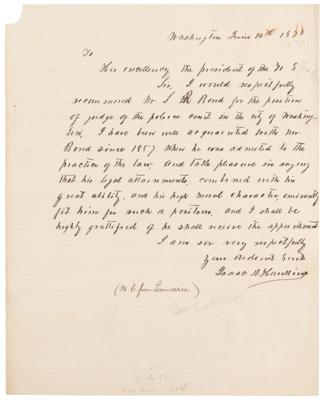 Washington June 14th 1870
To
His excellency the president of the U S
Sir, I would respectfully
recommend Mr. S R Bond for the position
of judge of the police court in the city of Washing
ton. I have been well acquainted with Mr
Bond since 1857. When he was admitted to the
practice of the law. And take pleasure in saying
that his legal attainments, combined with his
great ability. and his high moral character, eminently
fit him for such a position. and I shall be
highly gratified if he shall receive the appointment
I am sir very respectfully
Your obedient Servt
Isaac R Hawkins
(M.C from Tennessee)